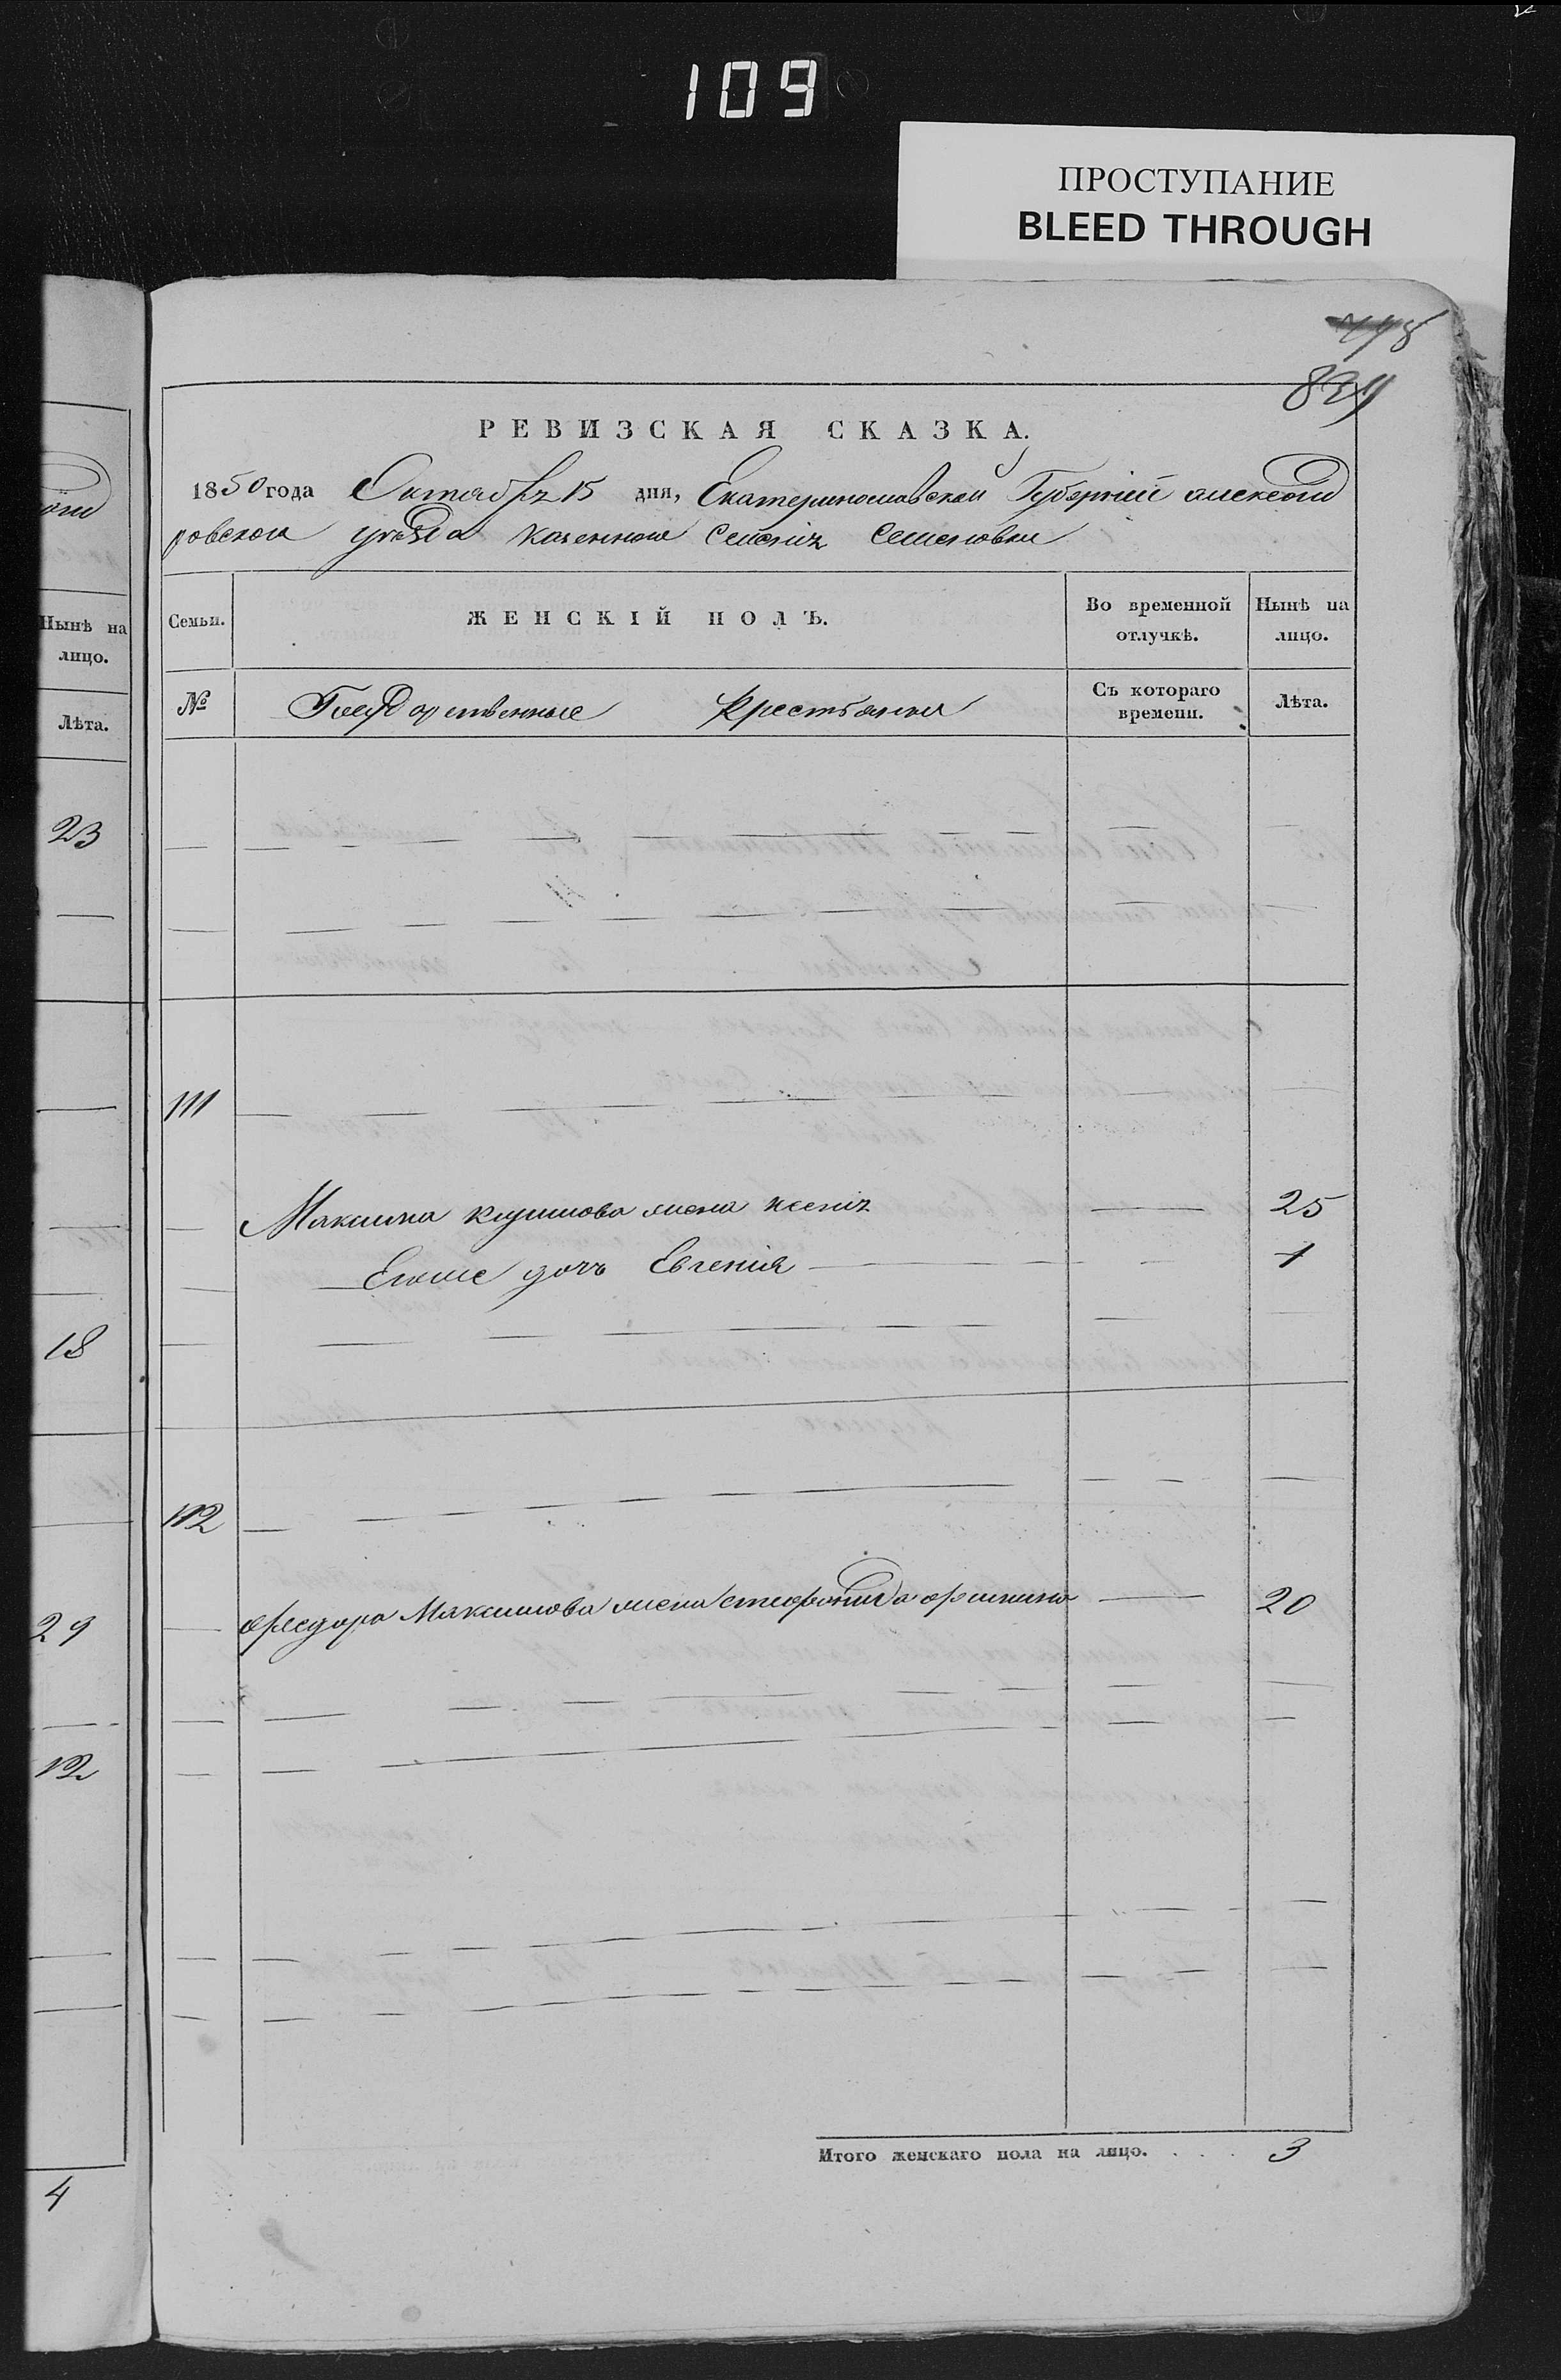 109
ПРОСТУПАНИЕ
BLEED THROUGH
РЕВИЗСКАЯ СКАЗКА.
1850 года Октября 15 дня, Екатеринославской Губернiи александ
ровского уезда казенного Селенiя Семеновки
Нынѣ на лицо.
Лѣта.
23
18
29
12
4
Семьи.
ЖЕНСКІЙ ПОЛЪ.
Во временной отлучкѣ.
Нынѣ на лицо.
№
Государственные Крестьяне
Съ котораго времени.
Лѣта.
111
Максима климова жена ксенiя 25
Егоже дочь Евгенiя 1
112
федора Максимова жена 20
Итого женскаго пола на лицо. . . . 3